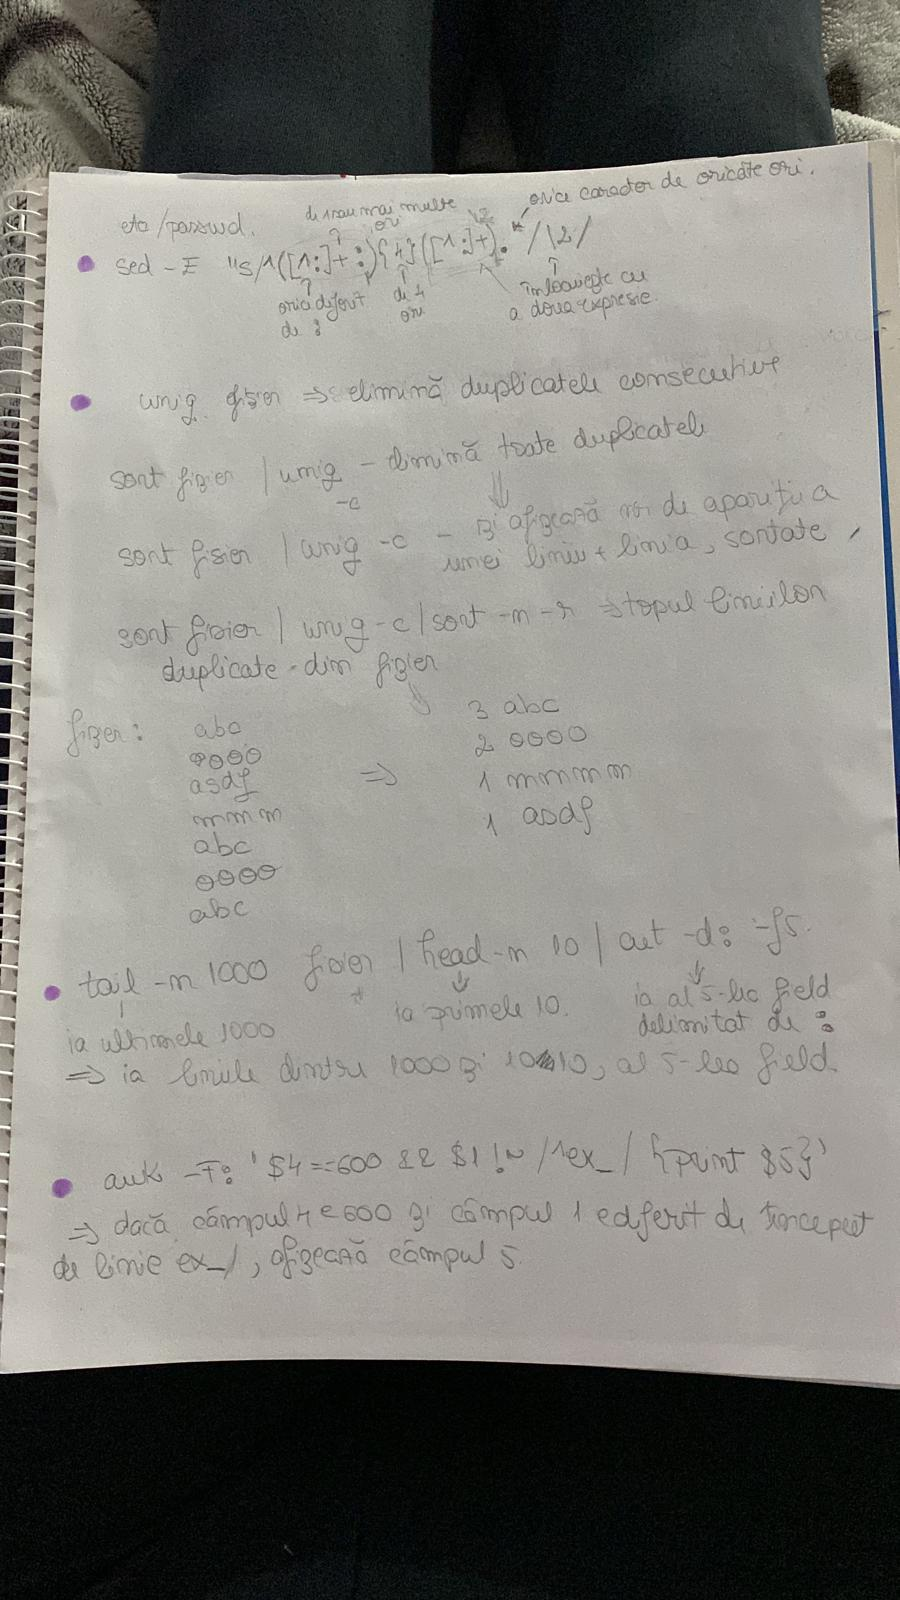 orice caracter de oricâte ori.
de 1 sau mai multe
ori
\2
etc/passwd.
sed -E "s/^([^:]+:){4}([^:]+).*/\2/
orice diferit
de :
de 4
ori
înlocuiește cu
a doua expresie.
uniq fișier => elimină duplicatele consecutive
sort fișier | uniq - elimină toate duplicatele
-c
sort fișier | uniq -c - și afișează nr. de apariții a
unei linii + linia, sortate
sort fișier | uniq -c | sort -n -r => topul liniilor
duplicate din fișier
fișier:
abc
0000
asdf
mmm
abc
0000
abc
=>
3 abc
2 0000
1 mmmm
1 asdf
tail -n 1000 fișier | head -n 10 | cut -d: -f5.
ia ultimele 1000
ia primele 10.
ia al 5-lea field
delimitat de :
=> ia liniile dintre 1000 și 1010, al 5-lea field.
awk -F: '$4==600 && $1 !~ /^ex_/ {print $5}'
=> dacă câmpul 4 e 600 și câmpul 1 e diferit de început
de linie ex_/, afișează câmpul 5.